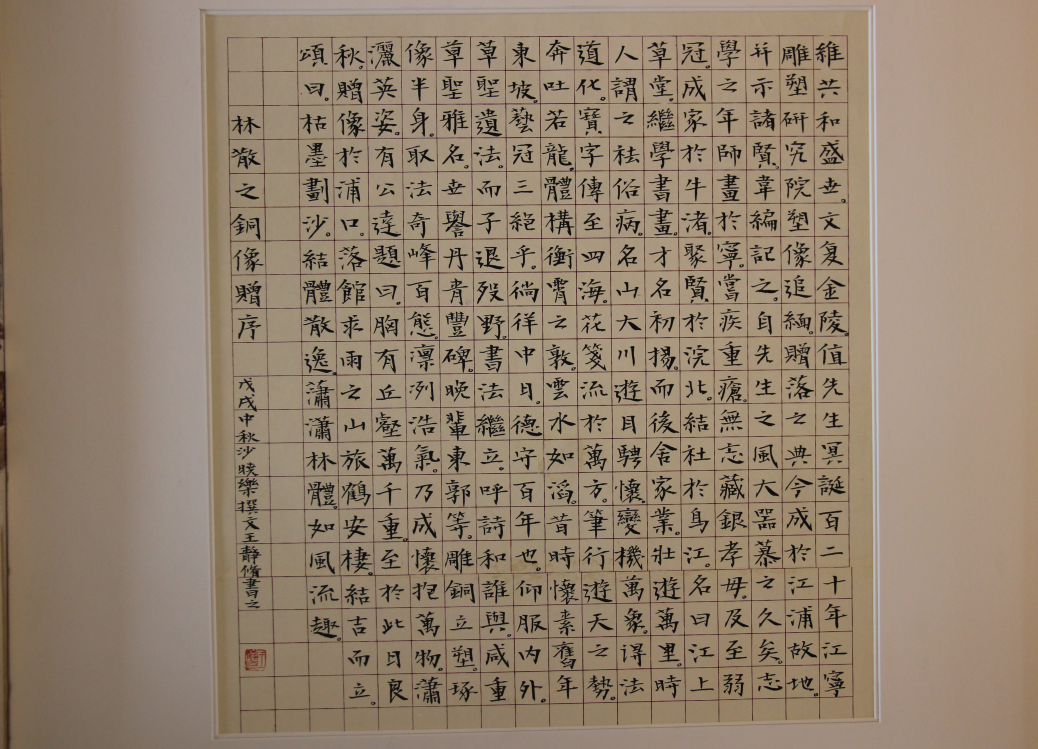 維共和盛世。文复金陵。值先生冥誕百二十年江寧
雕塑研究院塑像追緬。贈落之典今成於江浦故地。
并示諸賢。韋編記之。自先生之風大噐慕之久矣。志
學之年師畫於寧。嘗疾重瘡。無志藏銀孝毋。及至弱
冠。成家於牛渚。聚賢於浣北。結社於烏江。名曰江上
草堂。繼學書畫。才名初揚。而後舍家業。壯遊萬里。時
人謂之祛俗病。名山大川遊目騁懷。變機萬象。得法
道化。寶字傳至四海。花箋流於萬方。筆行遊天之勢。
奔吐若龍。體構衡霄之敦。雲水如滔。昔時懷素舊年
東坡。藝冠三絕乎。徜徉中日。德守百年也。仰服內外。
草聖遺法。而子退歿野。書法繼立。呼詩和誰與。咸重
草聖雅名。世譽丹青豐碑。晚輩東郭等。雕銅立塑。琢
像半身。取法奇峰百態。凛冽浩氣。乃成懷抱萬物。瀟
灑英姿。有公達題曰。胸有丘壑萬千重。至於此日良
秋。贈像於浦口。落館求雨之山旅鶴安棲。結吉而立。
頌曰。枯墨劃沙。結體散逸。瀟瀟林體。如風流趣。
林散之銅像贈序
戊戌中秋沙樂撰文王靜脩書之